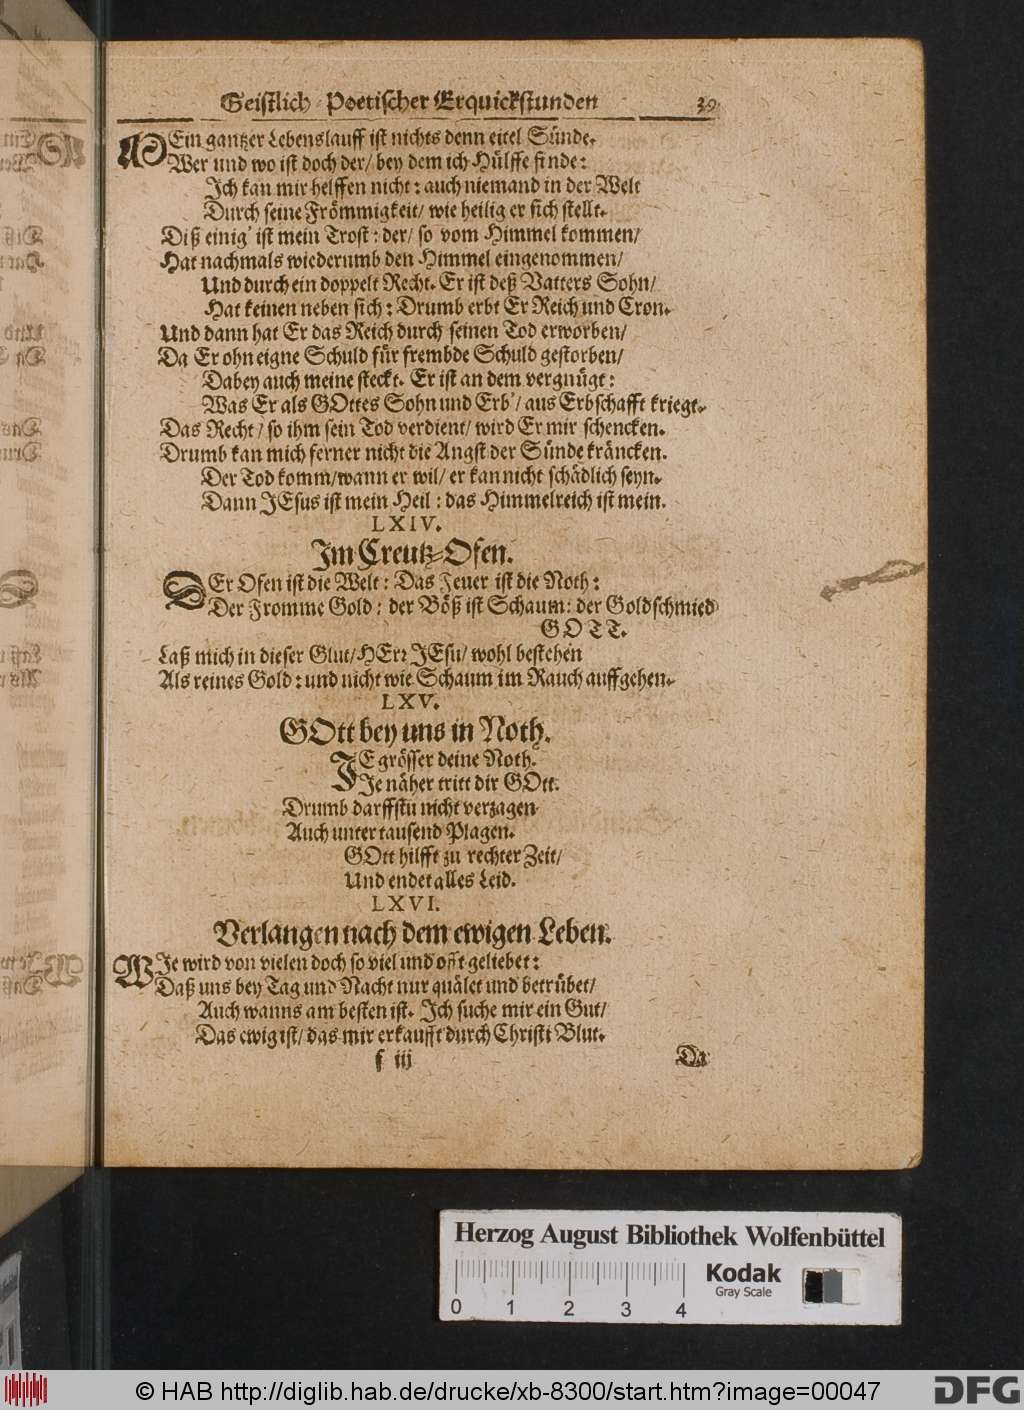 Geistlich-Poetischer Erquickstunden 39
MEin gantzer Lebenslauff ist nichts denn eitel Sünde.
Wer und wo ist doch der/ bey dem ich Hülffe finde:
Ich kan mir helffen nicht: auch niemand in der Welt
Durch seine Frömmigkeit/ wie heilig er sich stellt.
Diß einig' ist mein Trost: der/ so vom Himmel kommen/
Hat nachmals wiederumb den Himmel eingenommen/
Und durch ein doppelt Recht. Er ist deß Vatters Sohn/
Hat keinen neben sich: Drumb erbt Er Reich und Cron.
Und dann hat Er das Reich durch seinen Tod erworben/
Da Er ohn eigne Schuld für frembde Schuld gestorben/
Dabey auch meine steckt. Er ist an dem vergnügt:
Was Er als GOttes Sohn und Erb'/ aus Erbschafft kriegt.
Das Recht/ so ihm sein Tod verdient/ wird Er mir schencken.
Drumb kan mich ferner nicht die Angst der Sünde kräncken.
Der Tod komm/wann er wil/ er kan nicht schädlich seyn.
Dann JEsus ist mein Heil: das Himmelreich ist mein.
LXIV.
Im Creutz-Ofen.
DEr Ofen ist die Welt: Das Feuer ist die Noth:
Der Fromme Gold: der Böß ist Schaum: der Goldschmied
GOTT.
Laß mich in dieser Glut/HErr JEsu/ wohl bestehen
Als reines Gold: und nicht wie Schaum im Rauch auffgehen.
LXV.
GOtt bey uns in Noth.
JE grösser deine Noth.
Je näher tritt dir GOtt.
Drumb darffstu nicht verzagen
Auch unter tausend Plagen.
GOtt hilfft zu rechter Zeit/
Und endet alles Leid.
LXVI.
Verlangen nach dem ewigen Leben.
WIe wird von vielen doch so viel und offt geliebet:
Daß uns bey Tag und Nacht nur quälet und betrübet/
Auch wanns am besten ist. Ich suche mir ein Gut/
Das ewig ist/ das mir erkaufft durch Christi Blut.
f iij Da
Herzog August Bibliothek Wolfenbüttel
Kodak
Gray Scale
0 1 2 3 4
© HAB http://diglib.hab.de/drucke/xb-8300/start.htm?image=00047 DFG